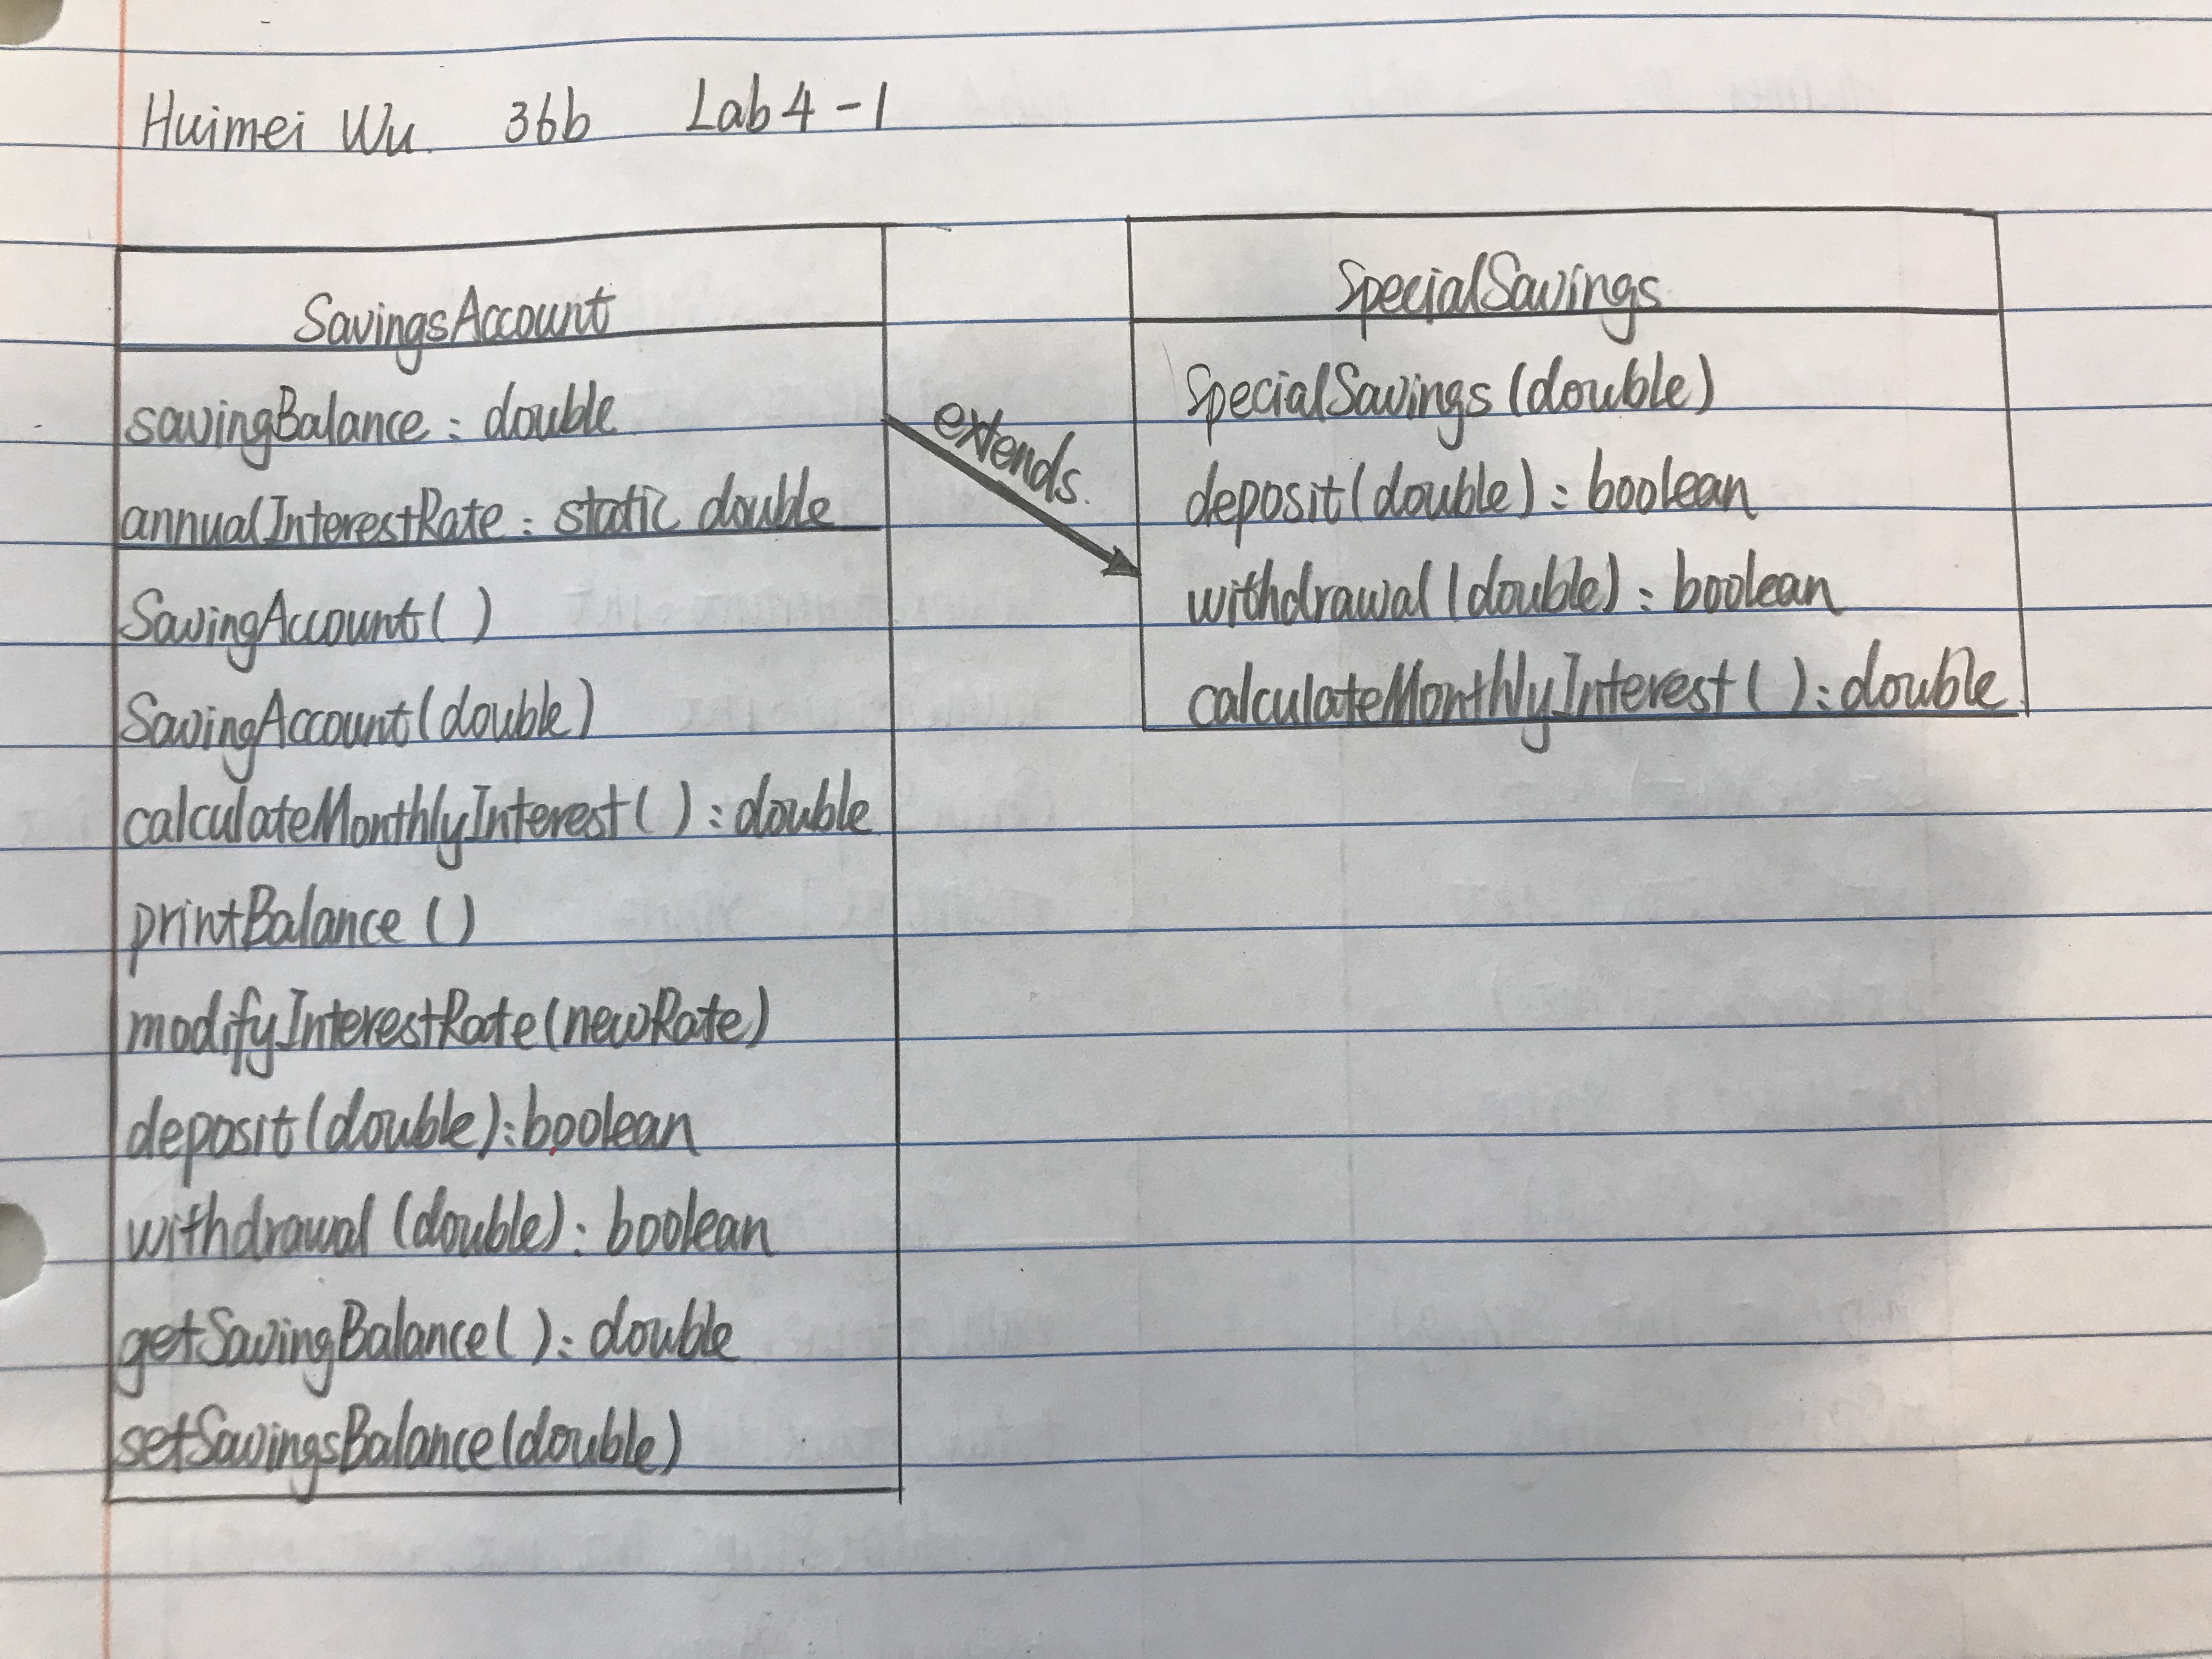 Huimei Wu. 36b Lab 4-1
SavingsAccount
savingBalance : double
annualInterestRate : static double
SavingAccount( )
SavingAccount(double)
calculateMonthlyInterest( ) : double
printBalance ( )
modifyInterestRate(newRate)
deposit(double) : boolean
withdrawal (double) : boolean
getSavingBalance( ) : double
setSavingsBalance(double)
extends.
SpecialSavings
SpecialSavings (double)
deposit(double) : boolean
withdrawal (double) : boolean
calculateMonthlyInterest ( ) : double